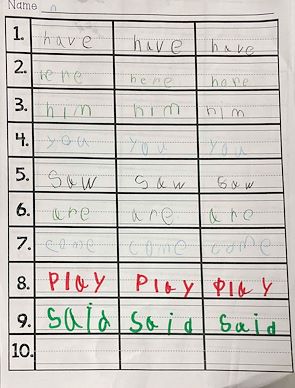 Name
1. have have have
2. here here here
3. him him him
4. you you you
5. saw saw saw
6. are are are
7. come come come
8. Play Play Play
9. said said said
10.